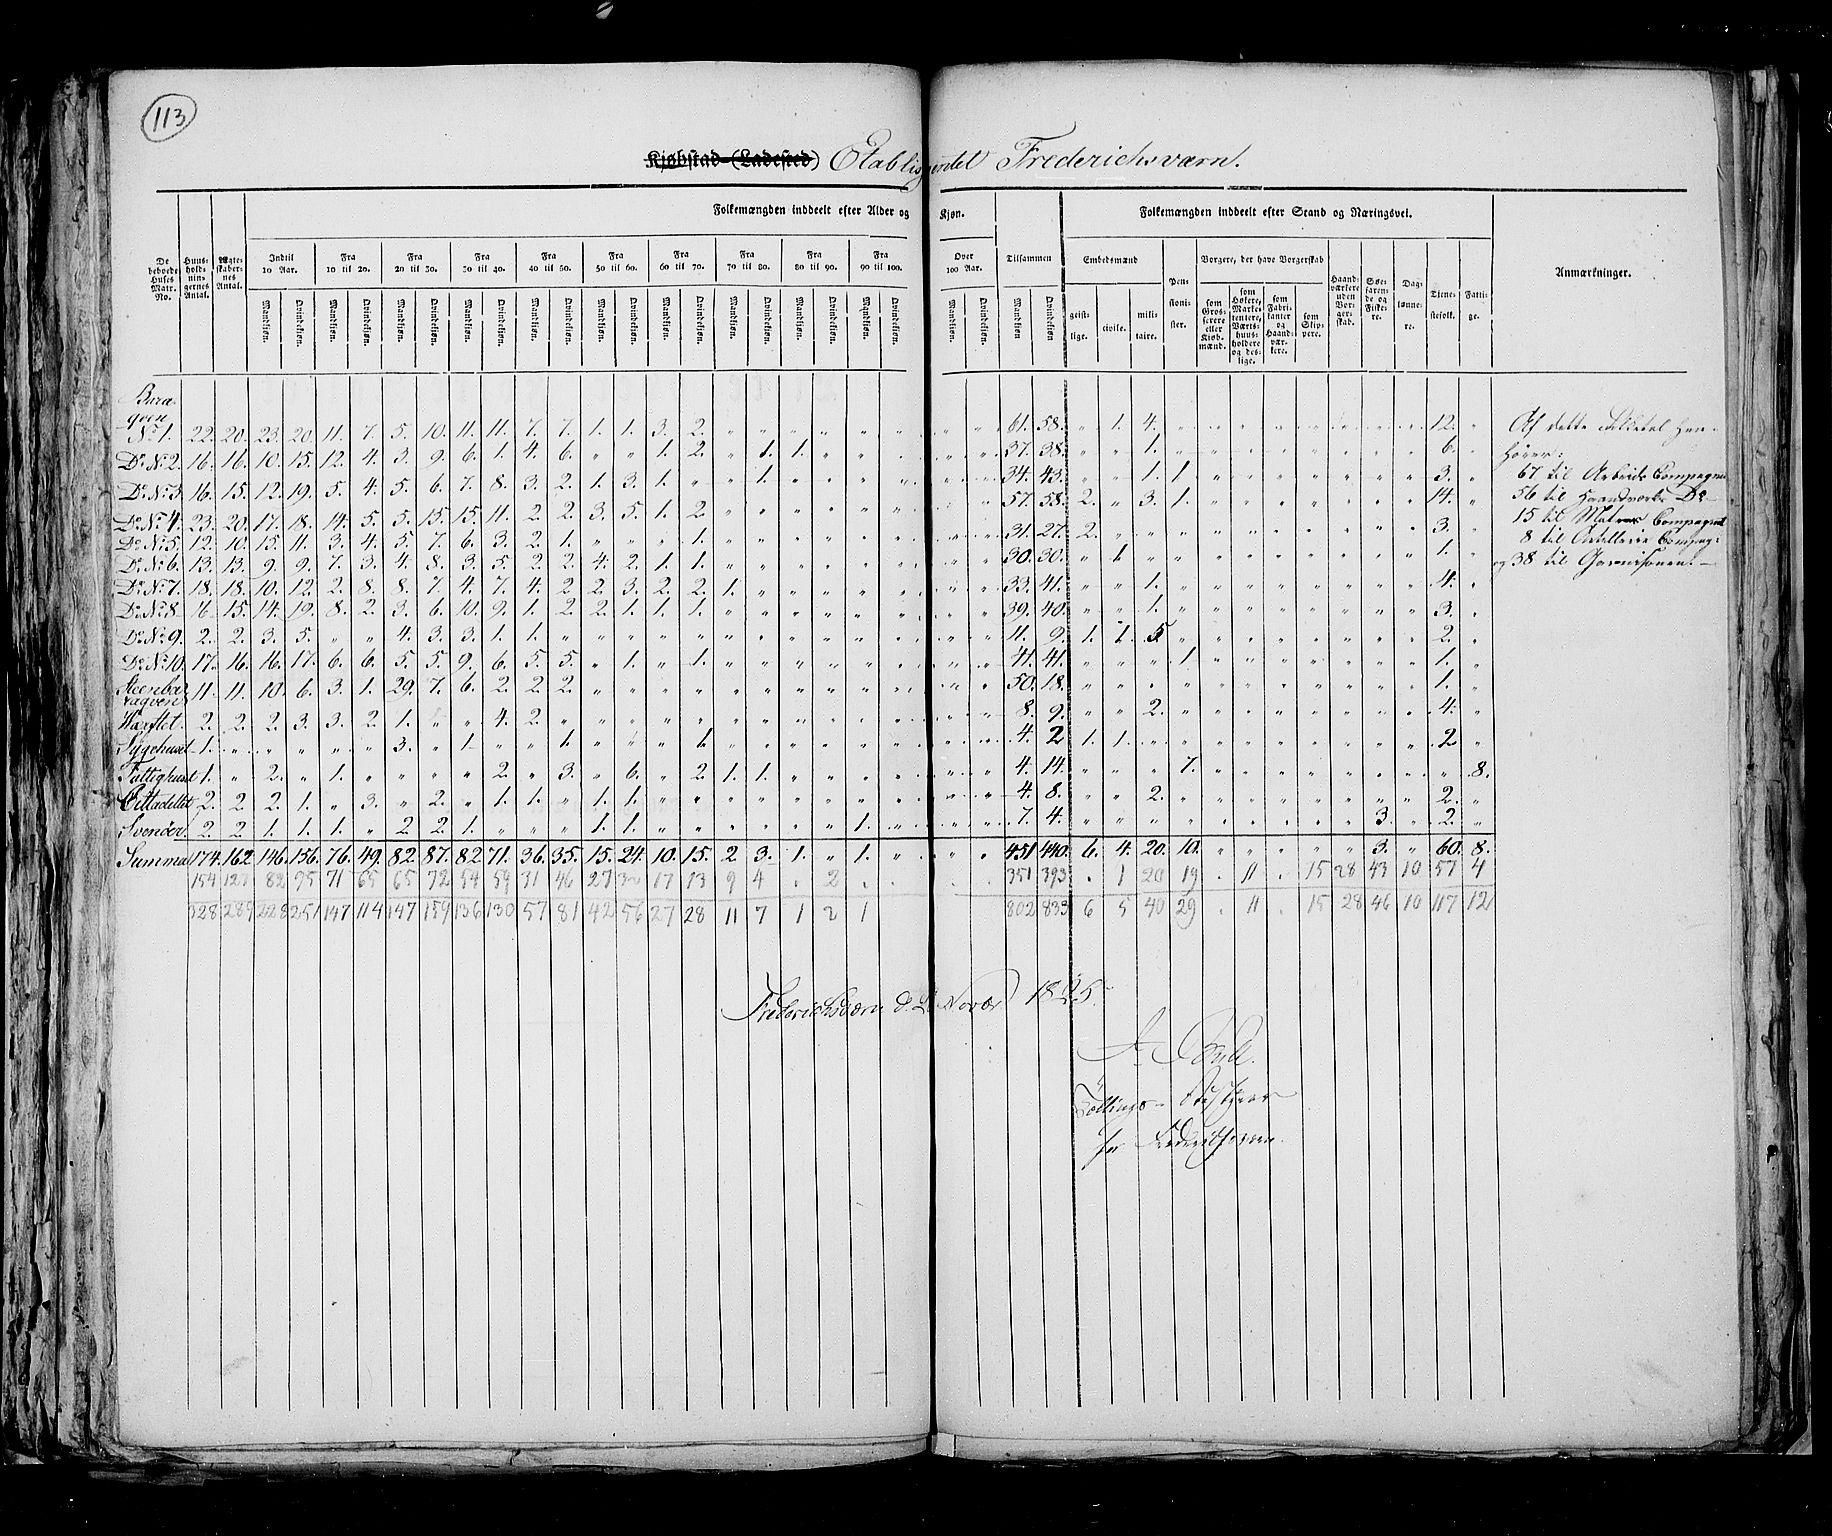 113
Kjøbstad (Ladested) Etablissementet Frederichsværn.
De beboede Huses Matr. No. | Huus-holdningernes Antal. | Ægteskabernes Antal. | Folkemængden inddeelt efter Alder og Kjøn. | Folkemængden inddeelt efter Stand og Næringsvei. | Anmærkninger.
Indtil 10 Aar. | Fra 10 til 20. | Fra 20 til 30. | Fra 30 til 40. | Fra 40 til 50. | Fra 50 til 60. | Fra 60 til 70. | Fra 70 til 80. | Fra 80 til 90. | Fra 90 til 100. | Over 100 Aar. | Tilsammen | Embedsmænd | Pensionister. | Borgere, der have Borgerskab | Haandværkere uden Borgerskab. | Søefarende og Fiskere. | Daglønnere. | Tjenestefolk. | Fattige.
Mandkjøn. | Qvindekjøn. | geistlige. | civile. | militaire. | som Grosserere eller Kjøbmænd. | som Høkere, Marketentere, Værtshuusholdere og deslige. | som Fabrikanter og Haandværkere. | som Skippere.
Baraqven
No 1. 22. 20. 23. 20. 11. 7. 5. 10. 11. 11. 7. 7. 1. 1. 3. 2. " " " " " " " " 61. 58. " 1. 4. " " " " " " " " 12. "
Do No 2. 16. 16. 10. 15. 12. 4. 3. 9. 6. 1. 4. 6. " " 1. 2. " 1. 1. " " " " " 37. 38. " " 1. " " " " " " " " 6. "
Do No 3. 16. 15. 12. 19. 5. 4. 5. 6. 7. 8. 3. 2. 1. 3. 1. " " 1. " " " " " " 34. 43. " " 1. 1. " " " " " " " 3. "
Do No 4. 23. 20. 17. 18. 14. 5. 5. 15. 15. 11. 2. 2. 3. 5. 1. 2. " " " " " " " " 57. 58. 2. " 3. 1. " " " " " " " 14. "
Do No 5. 12. 10. 15. 11. 3. 4. 5. 7. 6. 3. 2. 1. " " " 1. " " " " " " " " 31. 27. 2. " " " " " " " " " " 3. "
Do No 6. 13. 13. 9. 9. 7. 3. 4. 8. 3. 5. 2. 2. 4. 2. 1. 1. " " " " " " " " 30. 30. " 1. " " " " " " " " " 1. "
Do No 7. 18. 18. 10. 12. 2. 8. 8. 7. 4. 7. 4. 2. 2. 3. 2. 2. 1. " " " " " " " 33. 41. " " 1. " " " " " " " " 4. "
Do No 8. 16. 15. 14. 19. 8. 2. 3. 6. 10. 9. 1. 2. 2. 1. 1. 1. " " " " " " " " 39. 40. " " 1. " " " " " " " " 3. "
Do No 9. 2. 2. 3. 5. " " 4. 3. 3. 1. 1. " " " " " " " " " " " " " 11. 9. 1. 1. 5. " " " " " " " " 2. "
Do No 10. 17. 16. 16. 17. 6. 6. 5. 5. 9. 6. 5. 5. " 1. " 1. " " " " " " " " 41. 41. " " " 1. " " " " " " " 1. "
Steenbaraqven 11. 11. 10. 6. 3. 1. 29. 7. 6. 2. 2. 2. " " " " " " " " " " " " 50. 18. " " " " " " " " " " " 1. "
Værftet. 2. 2. 2. 3. 3. 2. 1. " " 4. 2. " " " " " " " " " " " " " 8. 9. " " 2. " " " " " " " " 4. "
Sygehuset 1. " " " " " 3. " 1. " " 1. " " " 1. " " " " " " " " 4. 2 1. 1. " " " " " " " " " 2 "
Fattighuset 1. " 2. " 1. " " " " 2. " 3. " 6. " 2. 1. 1. " " " " " " 4. 14. " " " 7. " " " " " " " " 8.
Cittadellet 2. 2. 2. 1. " 3. " 2. " 1. 1. " 1. 1. " " " " " " " " " " 4. 8. " " 2. " " " " " " " " 2. "
Svenör. 2. 2. 1. 1. 1. " 2. 2. 1. " " " 1. 1. " " " " " " 1. " " " 7. 4. " " " " " " " " " 3. " 2. "
Summa 174. 162. 146. 156. 76. 49. 82. 87. 82. 71. 36. 35. 15. 24. 10. 15. 2 3. 1. " 1. " " " 451 440. 6. 4. 20. 10. " " " " " 3. " 60. 8.
154 123 82 95 71 65 65 72 54 59 31 46 27 32 17 13 9 4 . 2 . 351 393 . 1 20 19 . 11 . 15 28 43 10 57 4
328 289 228 251 147 114 147 159 136 130 57 81 42 56 27 28 11 7 1 2 1 802 833 6 5 40 29 . 11 . 15 28 46 10 117 12
Af dette Folketal hen-
hører:
67 til Arbeids Compagniet
56 til Haandværks Do
15 til Matros Compagniet
8 til Artillerie Compag:
og 38 til Garnisonen.
Frederichsværn d. Novbr 1825.